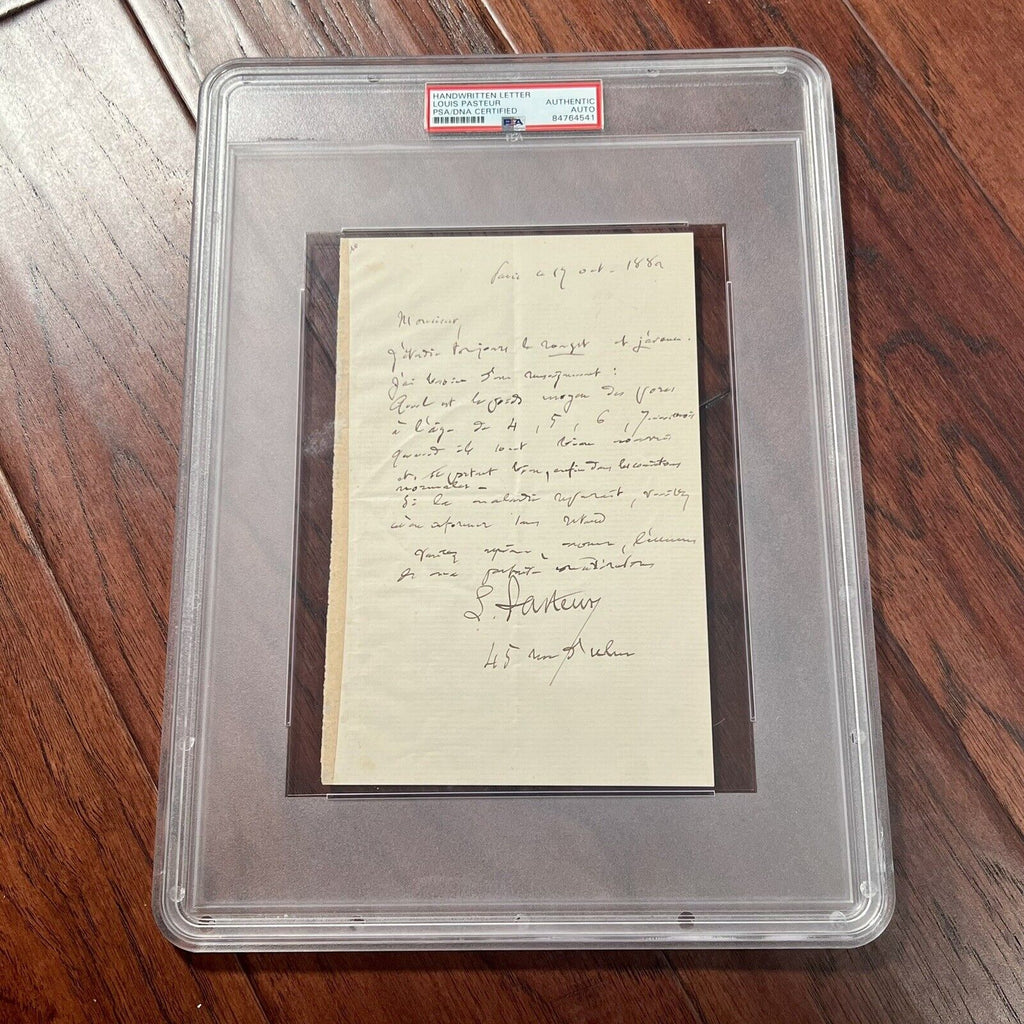 HANDWRITTEN LETTER
LOUIS PASTEUR
PSA/DNA CERTIFIED
AUTHENTIC
AUTO
84764541
PSA
PSA
Paris le 19 oct. 1882
Monsieur,
J'étudie toujours le rouget et j'avance.
J'ai besoin d'un renseignement :
Quel est le poids moyen des porcs
à l'âge de 4, 5, 6, 7
quand ils sont bien nourris
et se portent bien, enfin dans les conditions
normales -
Si la maladie reparait, veuillez
m'en informer sans retard
Veuillez agréer, monsieur, l'assurance
de ma parfaite considération
L. Pasteur
45 rue d'Ulm